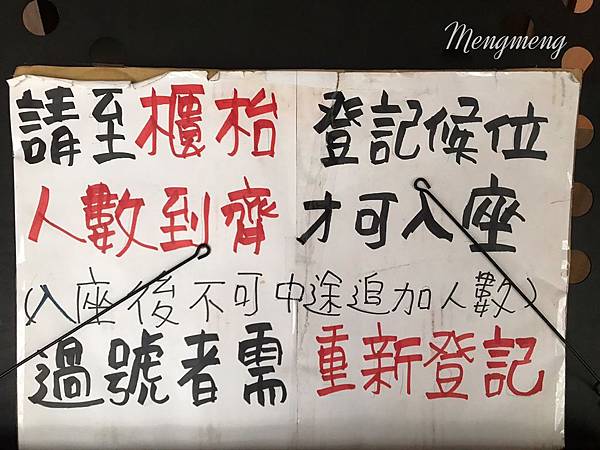 Mengmeng
請至櫃枱 登記候位
人數到齊 才可入座
(入座後不可中途追加人數)
過號者需 重新登記